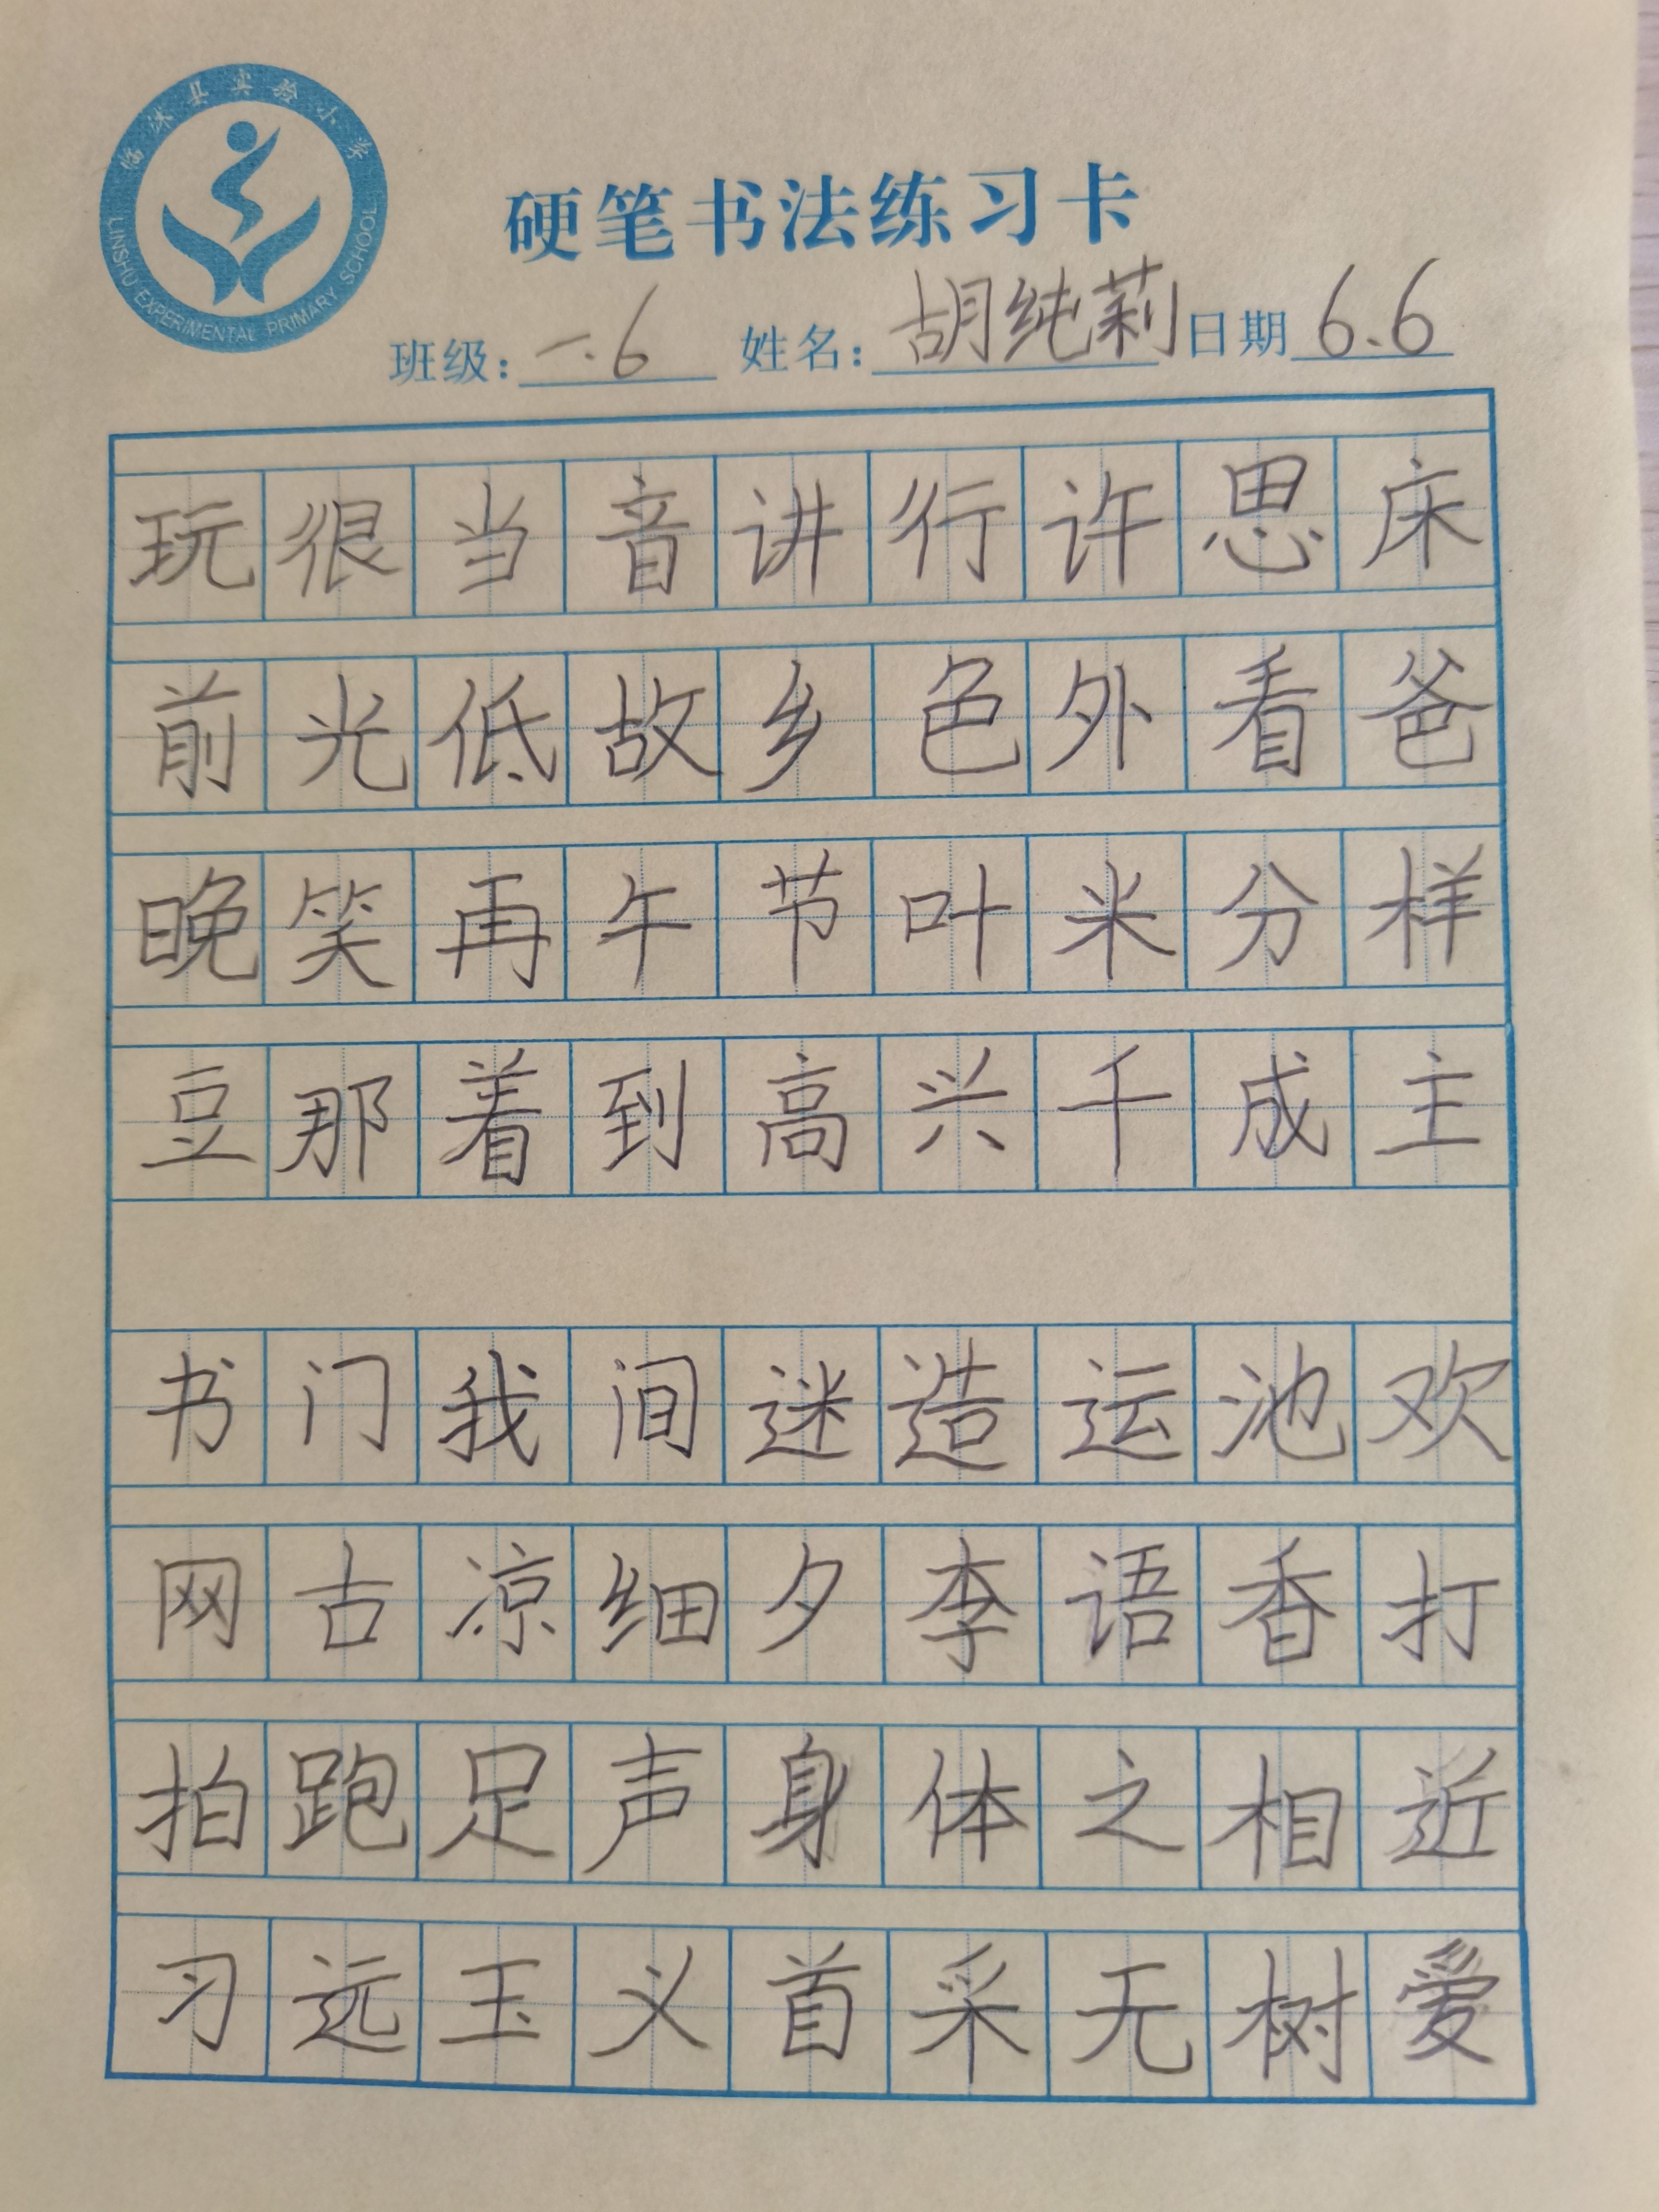 临沭县实验小学
LINSHU EXPERIMENTAL PRIMARY SCHOOL
硬笔书法练习卡
班级：一.6 姓名：胡纯莉 日期 6.6
玩很当音讲行许思床
前光低故乡色外看爸
晚笑再午节叶米分样
豆那着到高兴千成主
书门我间迷造运池欢
网古凉细夕李语香打
拍跑足声身体之相近
习远玉义首采无树爱